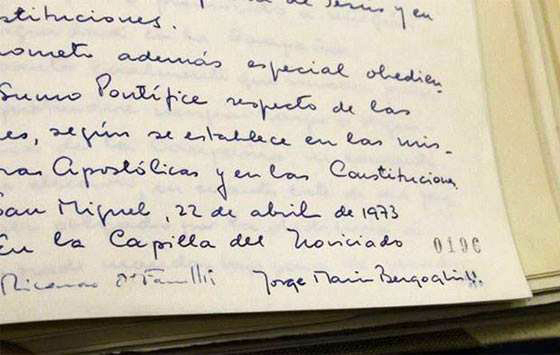 de Jesus y en
stituciones.
ometo además especial obedien
Sumo Pontífice respecto de las
es, según se establece en las mis-
ras Apostólicas y en las Constitucione
San Miguel, 22 de abril de 1973
En la Capilla del Noviciado 0196
Jorge Mario Bergoglio